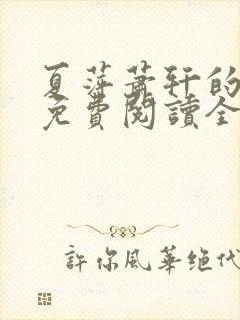 夏萍萧轩的
免費閱讀全
許你風華绝代